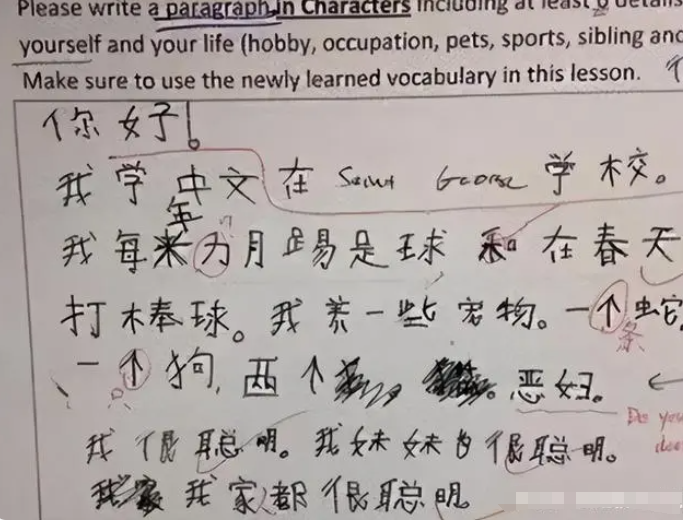 Please write a paragraph in Characters including at least 6 details
yourself and your life (hobby, occupation, pets, sports, sibling and
Make sure to use the newly learned vocabulary in this lesson.
你好!
我学中文在 Saint George 学校。
年
我每 月踢足球和在春天
打棒球。我养一些宠物。一个蛇
条
一个狗,两个
我很聪明。我妹妹也很聪明。
我家 我家人都很聪明。
Do you